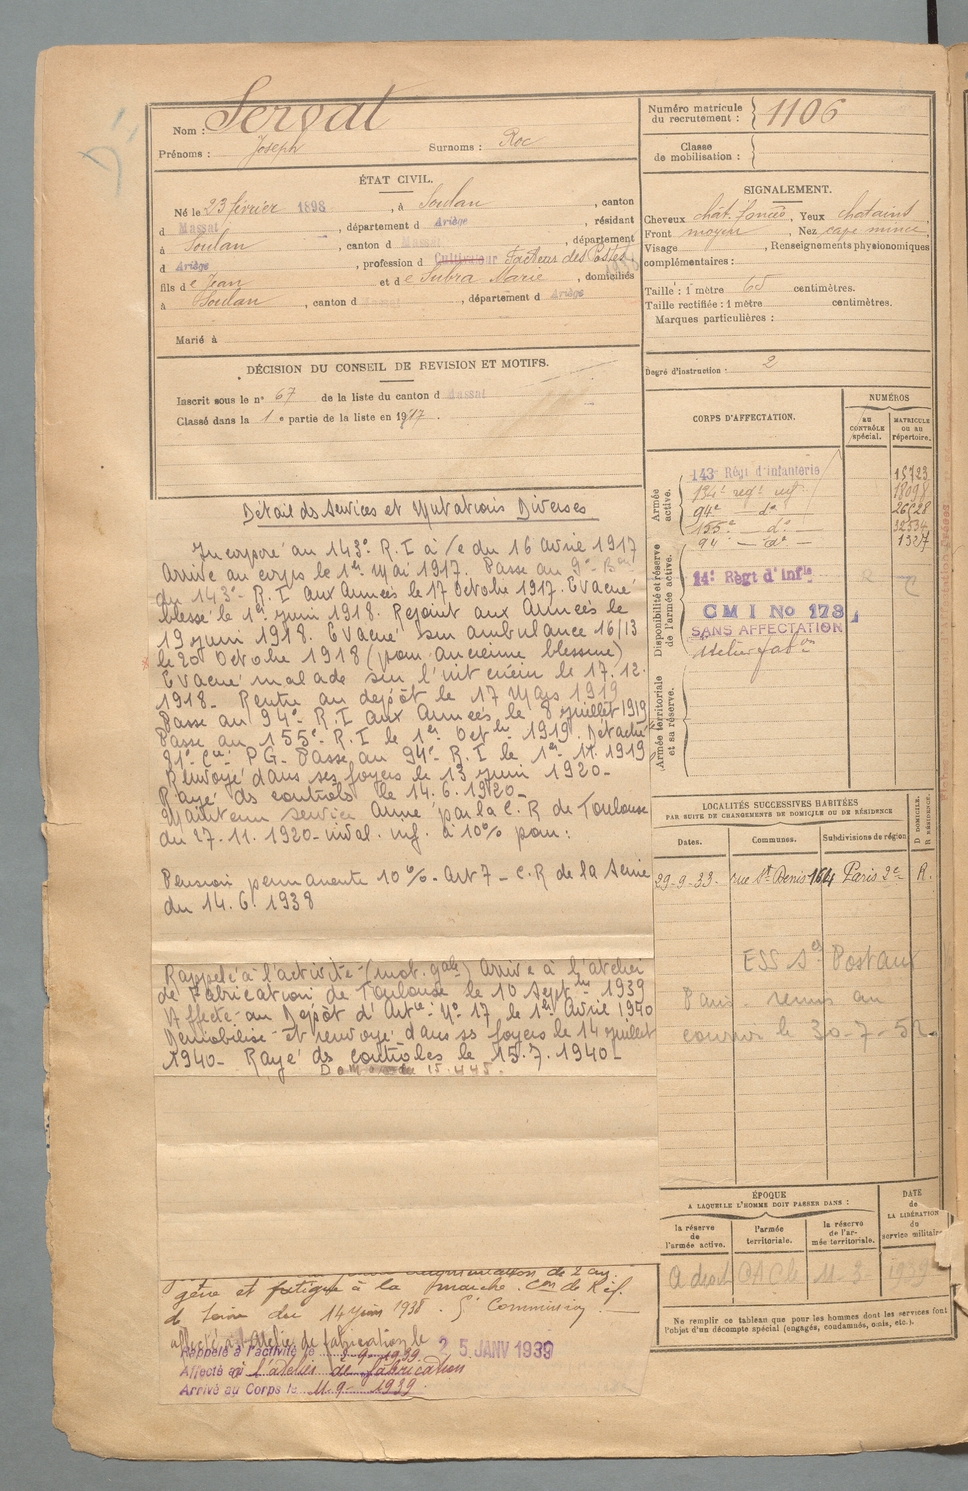 Nom : Servat
Prénoms : Joseph Surnoms : Roc
Numéro matricule du recrutement : 1106
Classe de mobilisation :
ÉTAT CIVIL.
Né le 23 février 1898, à Soulan, canton
d Massat, département d Ariège, résidant
à Soulan, canton d Massat, département
d Ariège, profession d Cultivateur Facteur des Postes
fils de Jean et de Subra Marie, domiciliés
à Soulan, canton d Massat, département d Ariège
Marié à
SIGNALEMENT.
Cheveux chât. foncés, Yeux chatains
Front moyen, Nez cave mince,
Visage , Renseignements physionomiques
complémentaires :
Taille : 1 mètre 65 centimètres.
Taille rectifiée : 1 mètre centimètres.
Marques particulières :
Degré d'instruction : 2
DÉCISION DU CONSEIL DE REVISION ET MOTIFS.
Inscrit sous le n° 67 de la liste du canton d Massat
Classé dans la 1e partie de la liste en 1917.
Détail ds Services et Mutations Diverses
Incorporé au 143e R.I à /c du 16 avril 1917
Arrivé au corps le 1er Mai 1917. Passé au 9e Bon
du 143e R.I aux Armées le 17 Octobre 1917. Evacué
blessé le 1er juin 1918. Rejoint aux Armées le
19 juin 1918. Evacué sur ambulance 16/13
le 20 Octobre 1918 (pour ancienne blessure)
Evacué malade sur l'int le 17.12.
1918. Rentré au dépôt le 17 Mars 1919
Passé au 94e R.I aux Armées le 8 juillet 1919
Passé au 155e R.I le 1er Octbre 1919. Détaché
91e Cie P.G. Passé au 94e R.I le 1er 11.1919
Renvoyé dans ses foyers le 13 juin 1920.
Rayé ds controls le 14.6.1920.
Maintenu service Armé par la C.R de Toulouse
du 27.11.1920. inval. inf. à 10% pour :
Pension permanente 10%. Art 7. C.R de la Seine
du 14.6.1938
Rappelé à l'activité (mob. gale) Arrivé à l'atelier
de Fabrication de Toulouse le 10 Septbre 1939
Affecté au Dépôt d'Artie N° 17 le 1er Avril 1940
Démobilisé et renvoyé dans ss foyers le 14 juillet
1940. Rayé ds controles le 15.7.1940
15.445.
de 2 cm
gêne et fatigue à la marche. Con de Réf.
de Seine du 14 juin 1938.
affecté à l'Atelier de fabrication le 25 JANV 1939
Rappelé à l'activité le 9.1939.
Affecté à l'atelier de fabrication
Arrivé au Corps le 11-9-1939.
CORPS D'AFFECTATION.
NUMÉROS
au CONTRÔLE spécial.
MATRICULE ou au répertoire.
Armée active.
143e Régt d'infanterie 15723
134e regt inf
94e do 26628
155e do 32534
94 do 1327
Disponibilité et réserve de l'armée active.
14e Régt d'infie
C M I No 178
SANS AFFECTATION
Armée territoriale et sa réserve.
LOCALITÉS SUCCESSIVES HABITÉES
PAR SUITE DE CHANGEMENTS DE DOMICILE OU DE RÉSIDENCE
Dates. Communes. Subdivisions de région. D DOMICILE. R RÉSIDENCE.
29-9-33. rue St Denis 164 Paris 2e R.
ESS Postaux
Paris. remis au
courrier le 30-7-52.
ÉPOQUE
A LAQUELLE L'HOMME DOIT PASSER DANS :
la réserve de l'armée active.
l'armée territoriale.
la réserve de l'armée territoriale.
DATE de LA LIBÉRATION du service militaire
A droit CAC le 11-3-1939
Ne remplir ce tableau que pour les hommes dont les services font
l'objet d'un décompte spécial (engagés, condamnés, omis, etc.).